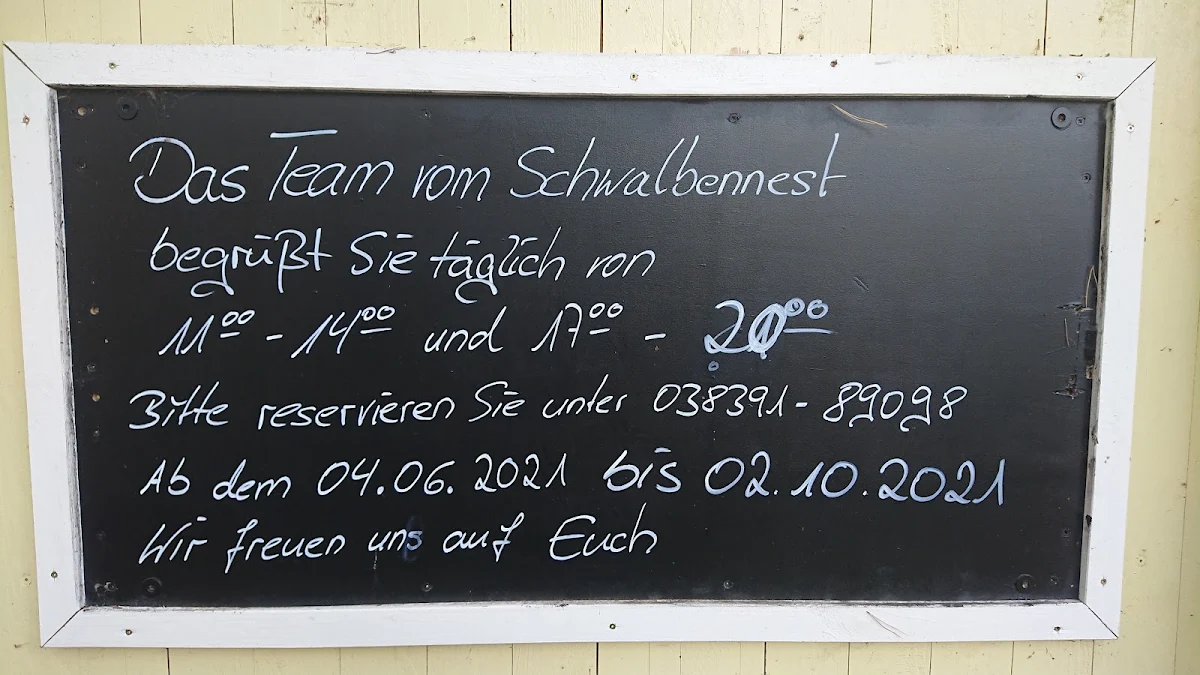 Das Team vom Schwalbennest
begrüßt Sie täglich von
11⁰⁰ - 14⁰⁰ und 17⁰⁰ - 20⁰⁰
Bitte reservieren Sie unter 038391-89098
Ab dem 04.06.2021 bis 02.10.2021
Wir freuen uns auf Euch